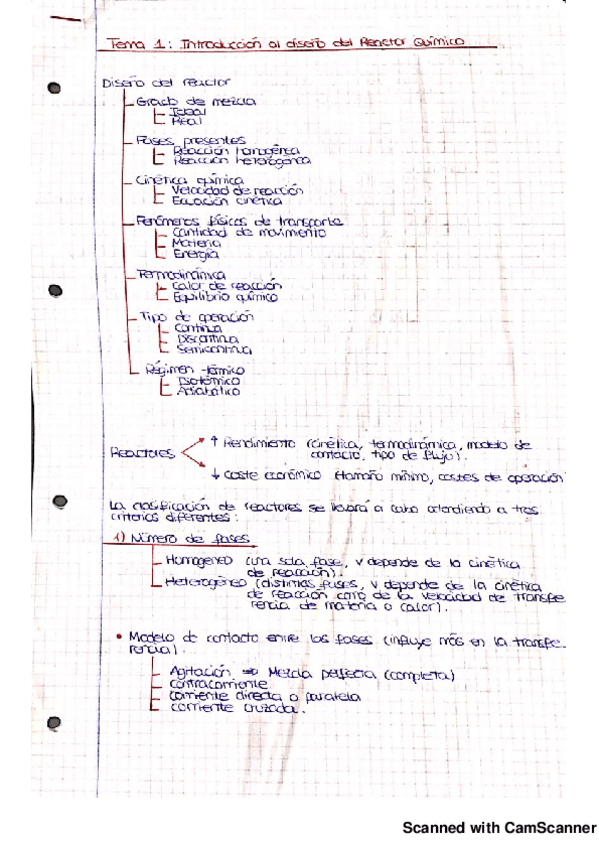 Tema 1: Introducción al diseño del Reactor Químico
Diseño del reactor
Grado de mezcla
Ideal
Real
Fases presentes
Reacción homogénea
Reacción heterogénea
Cinética química
Velocidad de reacción
Ecuación cinética
Fenómenos físicos de transporte
Cantidad de movimiento
Materia
Energía
Termodinámica
Calor de reacción
Equilibrio químico
Tipo de operación
Continua
Discontinua
Semicontinua
Régimen térmico
Isotérmico
Adiabático
Reactores
↑ Rendimiento (cinética, termodinámica, modelo de
contacto, tipo de flujo).
↓ Coste económico (tamaño mínimo, costes de operación
La clasificación de reactores se llevará a cabo atendiendo a tres
criterios diferentes:
1) Número de fases
Homogéneo (una sola fase, v depende de la cinética
de reacción).
Heterogéneo (distintas fases, v depende de la cinética
de reacción como de la velocidad de transfe
rencia de materia o calor).
• Modelo de contacto entre las fases (influye más en la transfe-
rencia).
Agitación ⇒ Mezcla perfecta (completa)
contracorriente
corriente directa o paralela
corriente cruzada.
Scanned with CamScanner